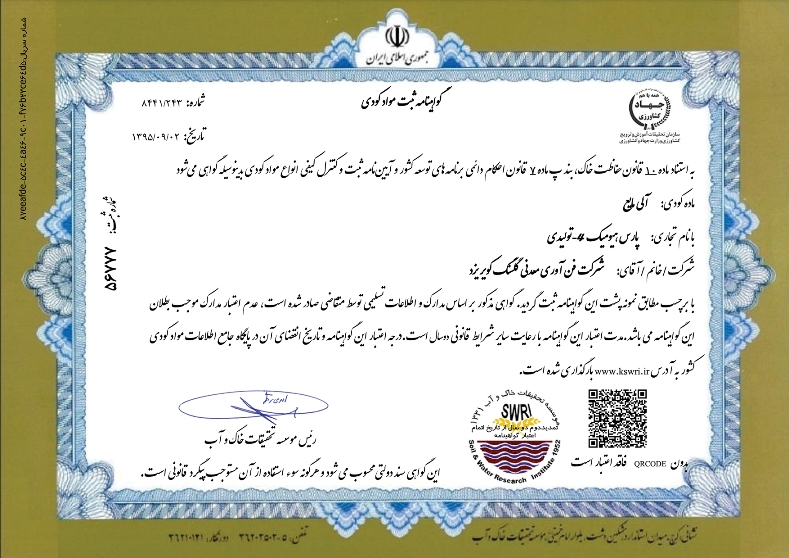 جمهوری اسلامی ایران
گواهینامه ثبت مواد کودی
شماره: ۸۴۴۱/۲۴۳
تاریخ: ۱۳۹۵/۰۹/۰۲
همه با هم
جهاد
کشاورزی
سازمان تحقیقات آموزش و ترویج
کشاورزی وزارت جهاد کشاورزی
شماره ثبت: ۵۶۷۷۷
به استناد ماده ۱۰ قانون حفاظت خاک، بند پ ماده ۷ قانون احکام دائمی برنامه های توسعه کشور و آیین نامه ثبت و کنترل کیفی انواع مواد کودی بدینوسیله گواهی می شود
ماده کودی: آلی مایع
با نام تجاری: پارس هیومیک -تولیدی
شرکت/خانم/آقای: شرکت فن آوری معدنی گلسنگ کویر یزد
با برچسب مطابق نمونه پشت این گواهینامه ثبت گردید. گواهی مذکور بر اساس مدارک و اطلاعات تسلیمی توسط متقاضی صادر شده است، عدم اعتبار مدارک موجب بطلان
این گواهینامه می باشد.مدت اعتبار این گواهینامه با رعایت سایر شرایط قانونی دوسال است.درجه اعتبار این گواهینامه و تاریخ انقضای آن در پایگاه جامع اطلاعات مواد کودی
کشور به آدرس www.kswri.ir بارگذاری شده است.
رئیس موسسه تحقیقات خاک و آب
موسسه تحقیقات خاک و آب ۱۳۳۱
SWRI
تمدید دوم دو سال از تاریخ اتمام
اعتبار گواهینامه
Soil & Water Research Institute 1952
بدون QRCODE فاقد اعتبار است
این گواهی سند دولتی محسوب می شود و هرگونه سوء استفاده از آن مستوجب پیگرد قانونی است.
نشانی: کرج، میدان استاندارد، مشکین دشت، بلوار امام خمینی، مؤسسه تحقیقات خاک و آب
تلفن: ۵-۳۶۲۰۲۵۰۲ دورنگار: ۳۶۲۱۰۱۲۱